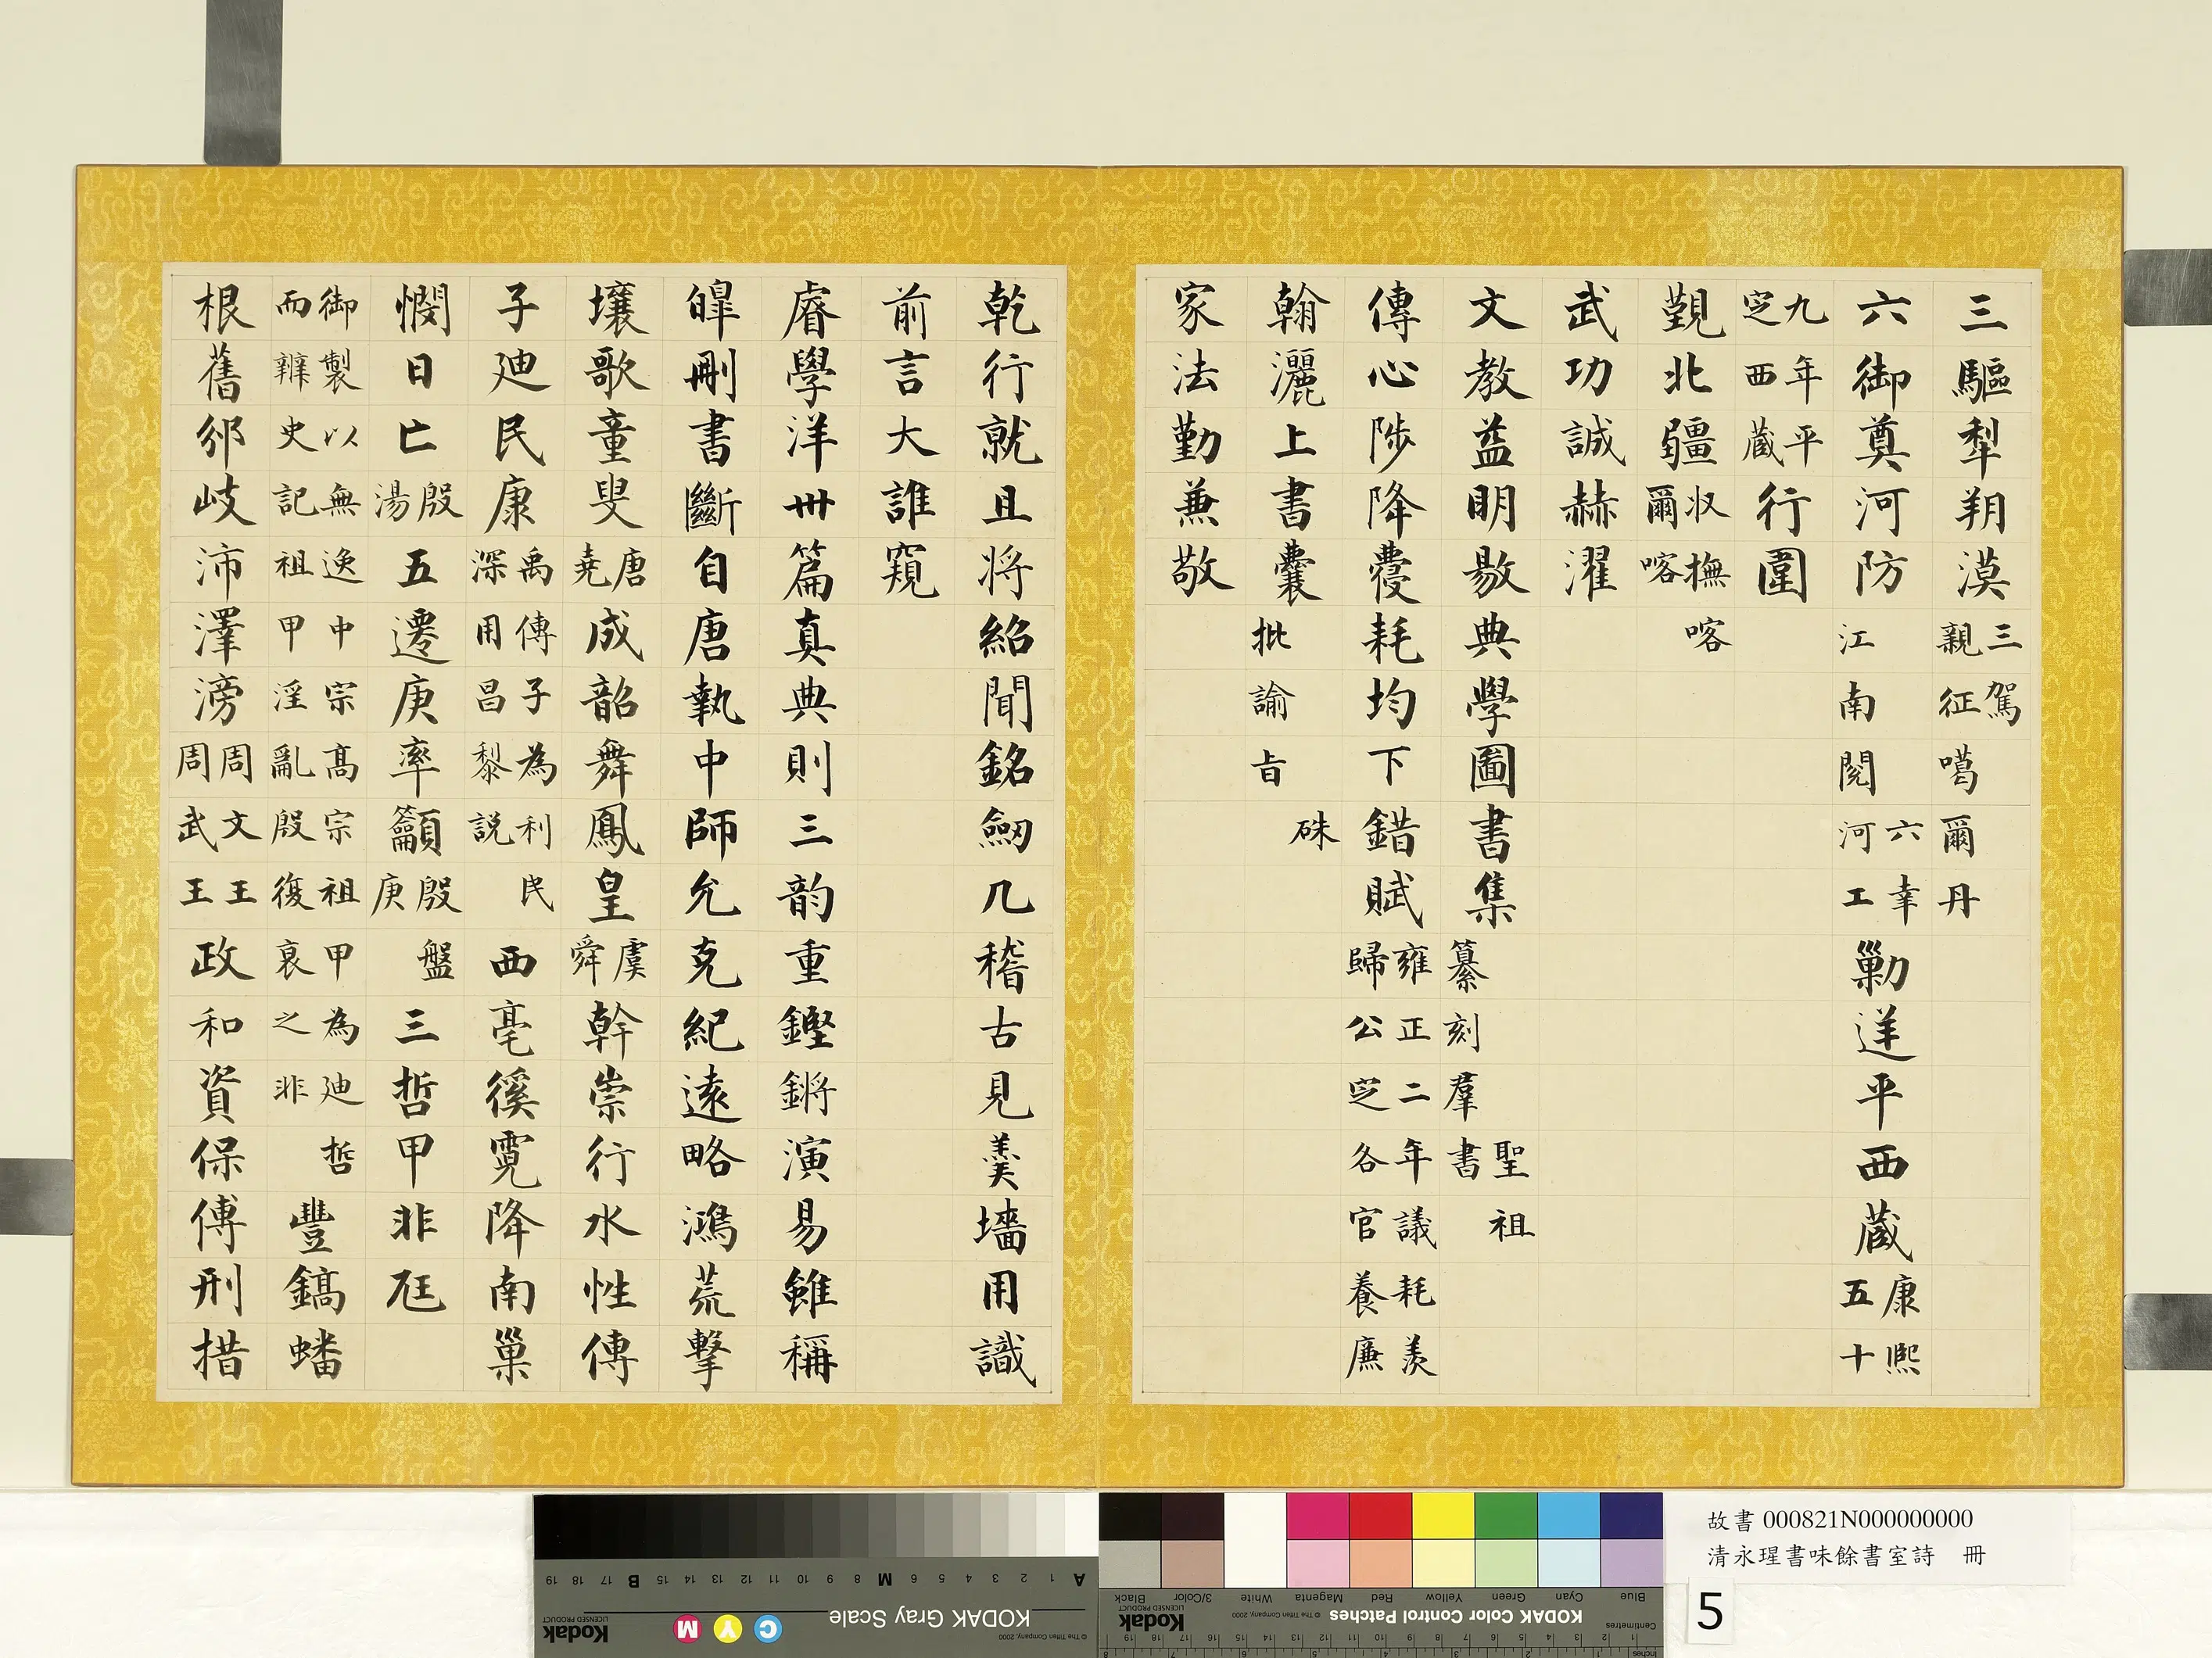 三驅犁朔漠三駕親征噶爾丹
六御奠河防六幸江南閱河工勦逆平西藏康熙五十
九年平定西藏行圍
覲北疆収撫喀爾喀
武功誠赫濯
文教益明敭典學圖書集聖祖纂刻羣書
傳心陟降薆耗均下錯賦雍正二年議耗羨歸公定各官養廉
翰灑上書囊硃批諭旨
家法勤兼敬
乾行就且將紹聞銘劒几稽古見羹墻用識
前言大誰窺
睿學洋卌篇真典則三韵重鏗鏘演易雖稱
皥刪書斷自唐執中師允克紀遠略鴻荒擊
壤歌童叟唐堯成韶舞鳳皇虞舜幹崇行水性傳
子迪民康禹傳子為利民深用昌黎説西亳徯霓降南巢
憫日亡殷湯五遷庚率籲殷盤庚三哲甲非尪
御製以無逸中宗高宗祖甲為迪哲而辨史記祖甲淫亂殷復衰之非豐鎬蟠
根舊邠岐沛澤滂周文王周武王政和資保傅刑措
故書 000821N000000000
清永瑆書味餘書室詩 冊
5
KODAK Gray Scale
KODAK Color Control Patches